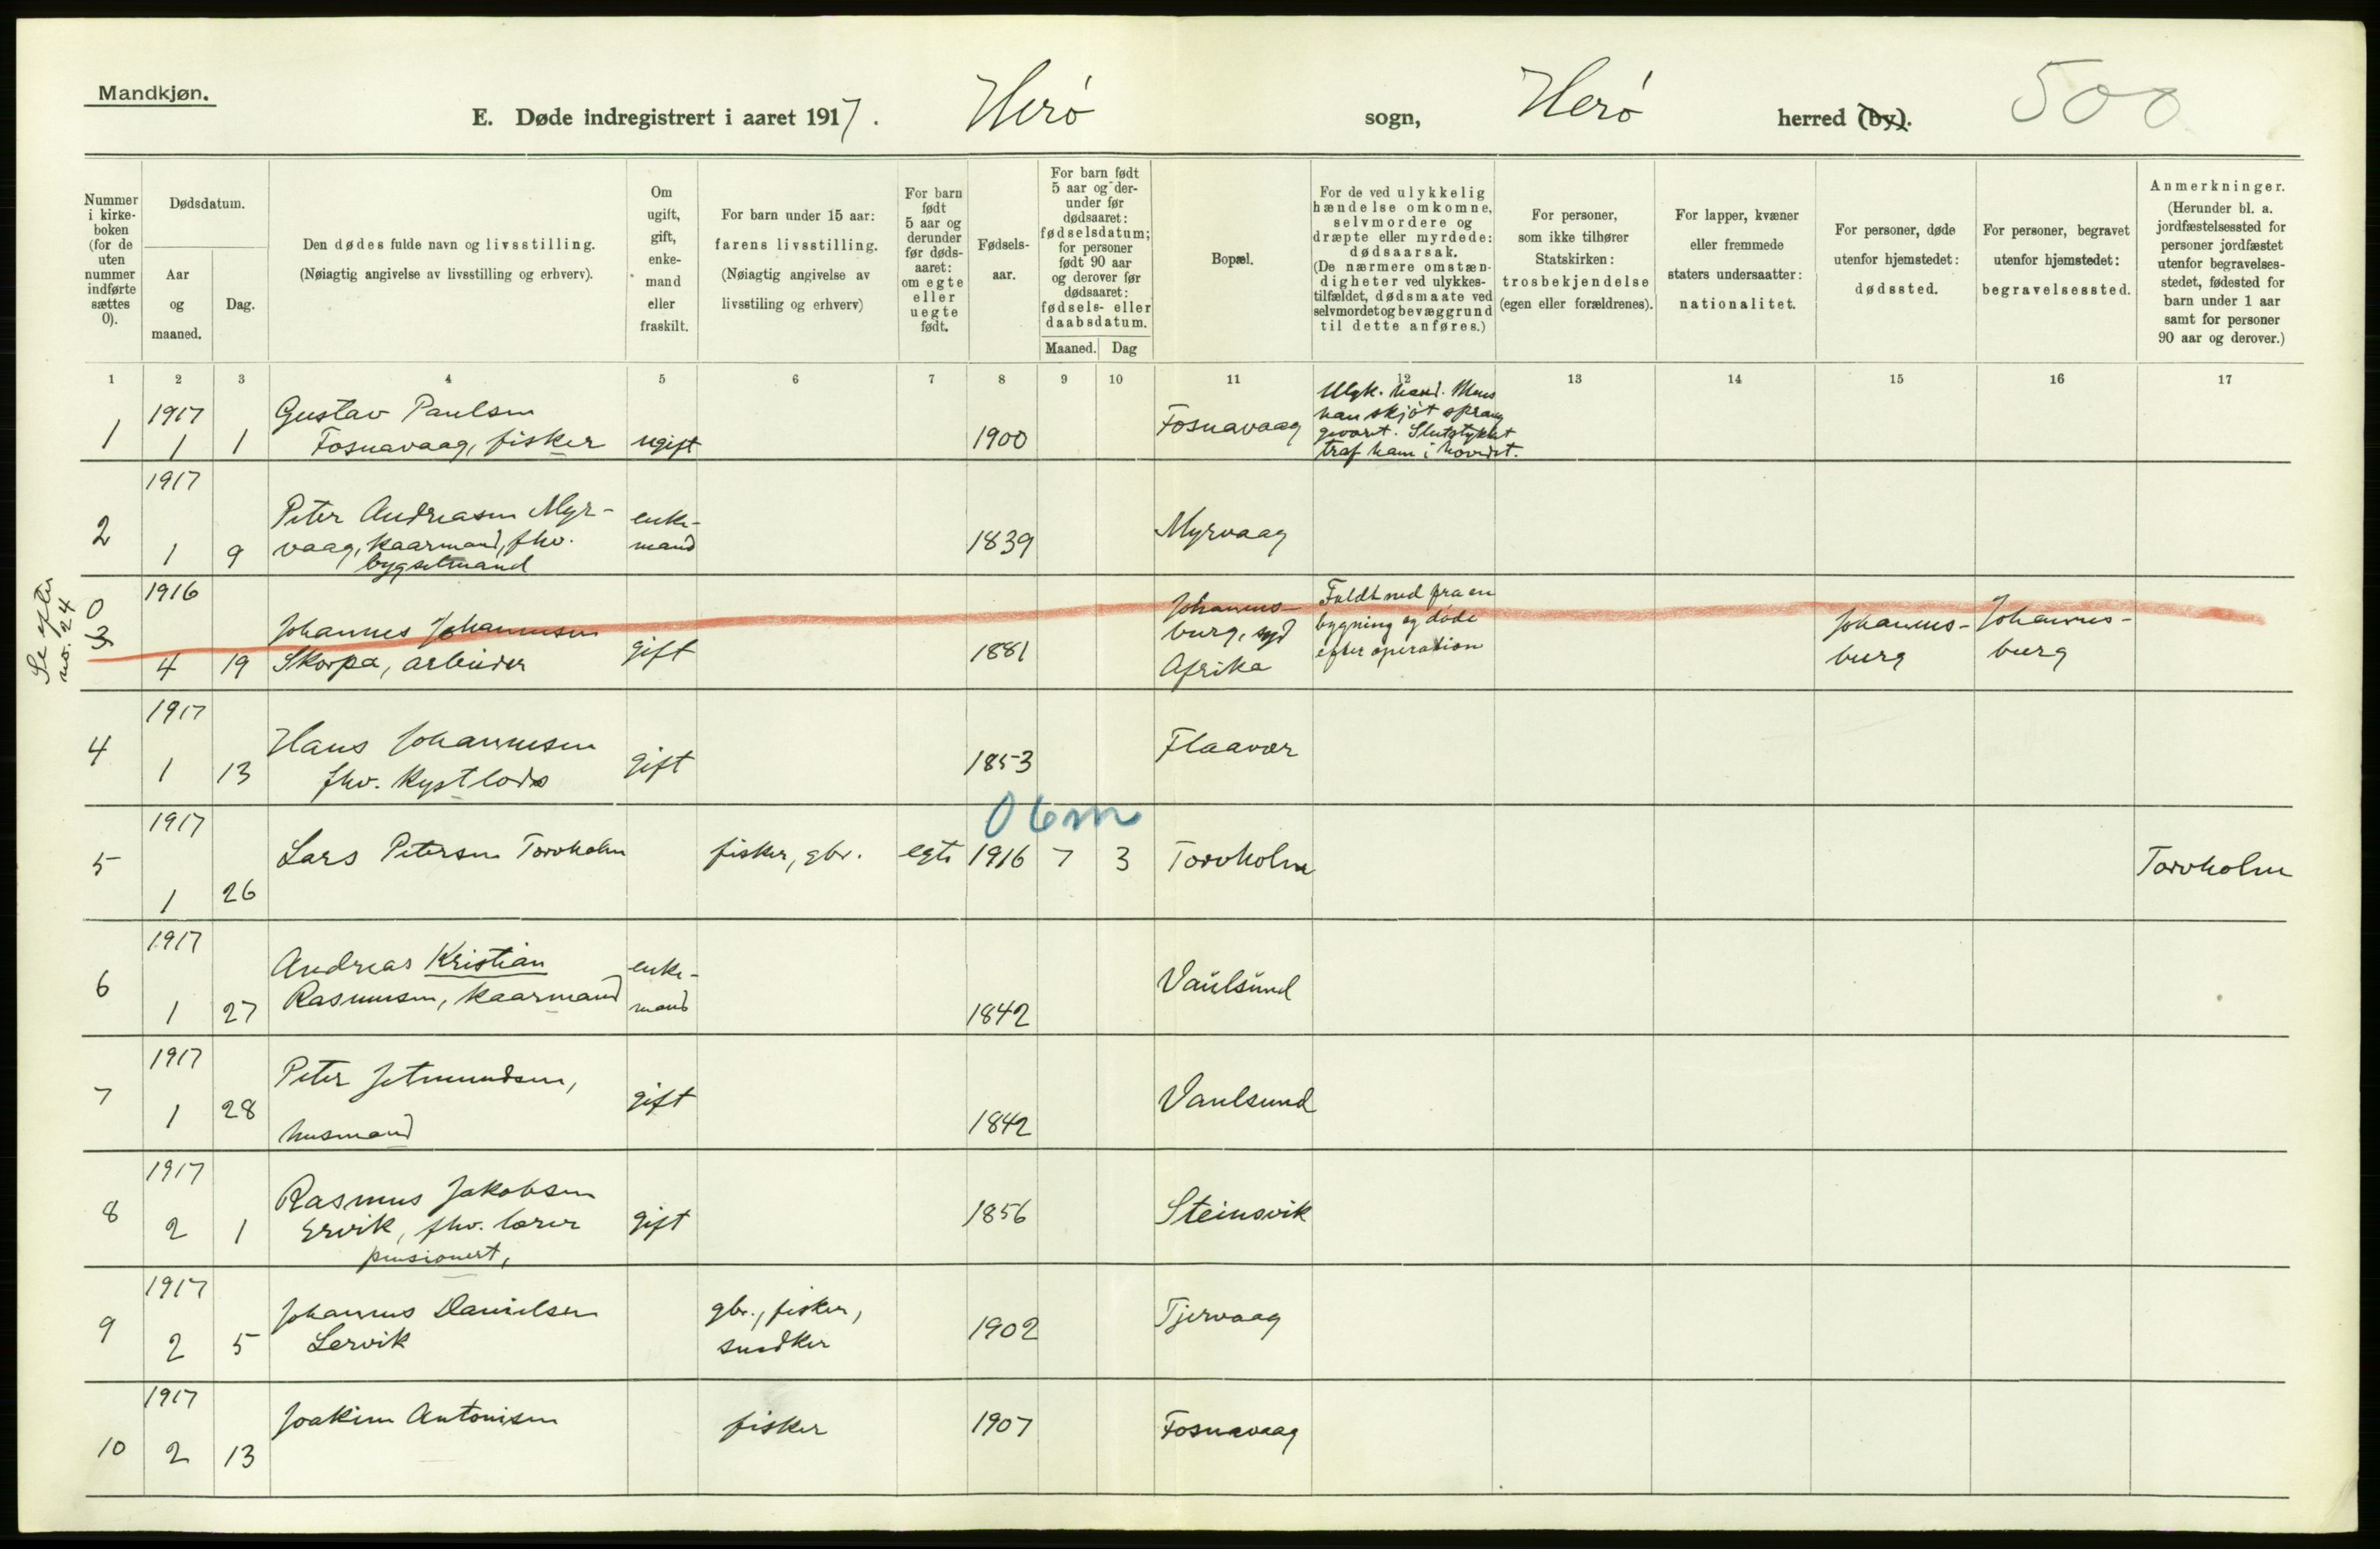 Mandkjøn.
E. Døde indregistrert i aaret 1917. Herø sogn, Herø herred (by). 500
Nummer i kirke-boken (for de uten nummer indførte sættes 0).
Dødsdatum.
Aar og maaned.
Dag.
Den dødes fulde navn og livsstilling.
(Nøiagtig angivelse av livsstilling og erhverv).
Om ugift, gift, enke-mand eller fraskilt.
For barn under 15 aar: farens livsstilling.
(Nøiagtig angivelse av livsstiling og erhverv)
For barn født 5 aar og derunder før døds-aaret: om egte eller uegte født.
Fødsels-aar.
For barn født 5 aar og der-under før dødsaaret: fødselsdatum; for personer født 90 aar og derover før dødsaaret: fødsels- eller daabsdatum.
Maaned. Dag
Bopæl.
For de ved ulykkelig hændelse omkomne, selvmordere og dræpte eller myrdede: dødsaarsak.
(De nærmere omstæn-digheter ved ulykkes-tilfældet, dødsmaate ved selvmordet og bevæggrund til dette anføres.)
For personer, som ikke tilhører Statskirken: trosbekjendelse (egen eller forældrenes).
For lapper, kvæner eller fremmede staters undersaatter: nationalitet.
For personer, døde utenfor hjemstedet: dødssted.
For personer, begravet utenfor hjemstedet: begravelsessted.
Anmerkninger.
(Herunder bl. a. jordfæstelsessted for personer jordfæstet utenfor begravelses-stedet, fødested for barn under 1 aar samt for personer 90 aar og derover.)
1 2 3 4 5 6 7 8 9 10 11 12 13 14 15 16 17
1 1917 1 1 Gustav Paulsen
Fosnavaag, fisker ugift 1900 Fosnavaag
Ulyk. hænd. Mens
han skjøt sprang
geværet. Slutstykket
traf ham i hovedet.
2 1917 1 9 Peter Andreasen Myr-
vaag, kaarmand, fhv.
bygselmand
enke-
mand 1839 Myrvaag
Se efter
no. 24
0
3 1916 4 19 Johannes Johannesen
Skorpa, arbeider gift 1881
Johannes-
burg, syd
Afrika
Faldt ned fra en
bygning og døde
efter operation
Johannes-
burg
Johannes-
burg
4 1917 1 13 Hans Johannesen
fhv. kystlods gift 1853 Flaavær
0 6m
5 1917 1 26 Lars Petersen Torvholm fisker, gbr. egte 1916 7 3 Torvholm Torvholm
6 1917 1 27 Andreas Kristian
Rasmusen, kaarmand
enke-
mand 1842 Vaulsund
7 1917 1 28 Peter Jetmundsen,
husmand gift 1842 Vaulsund
8 1917 2 1 Rasmus Jakobsen
Ervik, fhv. lærer
pensionert, gift 1856 Steinsvik
9 1917 2 5 Johannes Danielsen
Lervik
gbr., fisker,
snedker 1902 Tjervaag
10 1917 2 13 Joakim Antonisen fisker 1907 Fosnavaag